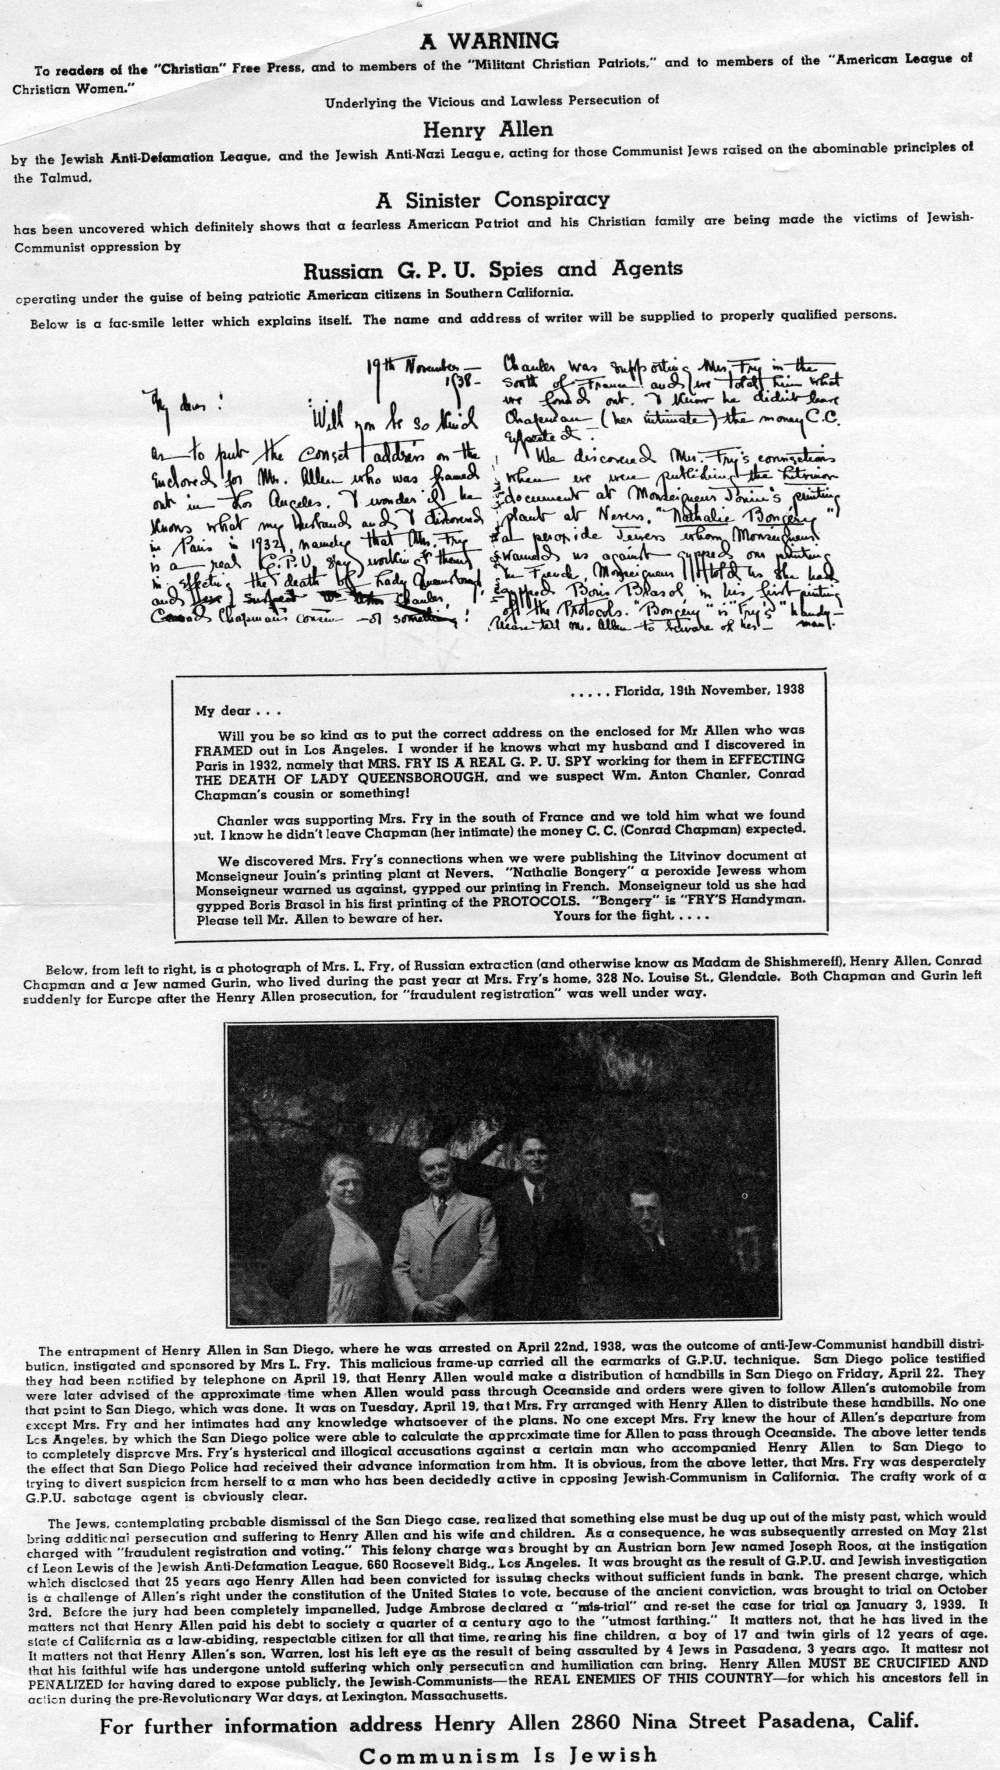 A WARNING
To readers of the "Christian" Free Press, and to members of the "Militant Christian Patriots," and to members of the "American League of
Christian Women."
Underlying the Vicious and Lawless Persecution of
Henry Allen
by the Jewish Anti-Defamation League, and the Jewish Anti-Nazi League, acting for those Communist Jews raised on the abominable principles of
the Talmud,
A Sinister Conspiracy
has been uncovered which definitely shows that a fearless American Patriot and his Christian family are being made the victims of Jewish-
Communist oppression by
Russian G. P. U. Spies and Agents
operating under the guise of being patriotic American citizens in Southern California.
Below is a fac-smile letter which explains itself. The name and address of writer will be supplied to properly qualified persons.
19th November —
1938 —
My dear :
Will you be so kind
as to put the correct address on the
enclosed for Mr. Allen who was framed
out in Los Angeles. I wonder if he
knows what my husband and I discovered
in Paris in 1932, namely that Mrs. Fry
is a real G.P.U. spy working for them
in effecting the death of Lady Queensborough
and suspect Chanler,
Conrad Chapman's cousin — or something!
Chanler was supporting Mrs. Fry in the
South of France and we told him what
we found out. I know he didn't leave
Chapman (her intimate) the money C.C.
expected —
We discovered Mrs. Fry's connections
when we were publishing the Litvinov
document at Monseigneur Jouin's printing
plant at Nevers. "Nathalie Bongery"
a peroxide Jewess whom Monseigneur
warned us against gypped our printing
in French, Monseigneur told us she had
gypped Boris Brasol in his first printing
of the Protocols. "Bongery" is "Fry's" handy-
man.
Please tell Mr. Allen to beware of her —
. . . . . Florida, 19th November, 1938
My dear . . .
Will you be so kind as to put the correct address on the enclosed for Mr Allen who was
FRAMED out in Los Angeles. I wonder if he knows what my husband and I discovered in
Paris in 1932, namely that MRS. FRY IS A REAL G. P. U. SPY working for them in EFFECTING
THE DEATH OF LADY QUEENSBOROUGH, and we suspect Wm. Anton Chanler, Conrad
Chapman's cousin or something!
Chanler was supporting Mrs. Fry in the south of France and we told him what we found
out. I know he didn't leave Chapman (her intimate) the money C. C. (Conrad Chapman) expected.
We discovered Mrs. Fry's connections when we were publishing the Litvinov document at
Monseigneur Jouin's printing plant at Nevers. "Nathalie Bongery" a peroxide Jewess whom
Monseigneur warned us against, gypped our printing in French. Monseigneur told us she had
gypped Boris Brasol in his first printing of the PROTOCOLS. "Bongery" is "FRY'S Handyman.
Please tell Mr. Allen to beware of her. Yours for the fight, . . . .
Below, from left to right, is a photograph of Mrs. L. Fry, of Russian extraction (and otherwise know as Madam de Shishmereff), Henry Allen, Conrad
Chapman and a Jew named Gurin, who lived during the past year at Mrs. Fry's home, 328 No. Louise St., Glendale. Both Chapman and Gurin left
suddenly for Europe after the Henry Allen prosecution, for "fraudulent registration" was well under way.
The entrapment of Henry Allen in San Diego, where he was arrested on April 22nd, 1938, was the outcome of anti-Jew-Communist handbill distri-
bution, instigated and sponsored by Mrs L. Fry. This malicious frame-up carried all the earmarks of G.P.U. technique. San Diego police testified
they had been notified by telephone on April 19, that Henry Allen would make a distribution of handbills in San Diego on Friday, April 22. They
were later advised of the approximate time when Allen would pass through Oceanside and orders were given to follow Allen's automobile from
that point to San Diego, which was done. It was on Tuesday, April 19, that Mrs. Fry arranged with Henry Allen to distribute these handbills. No one
except Mrs. Fry and her intimates had any knowledge whatsoever of the plans. No one except Mrs. Fry knew the hour of Allen's departure from
Los Angeles, by which the San Diego police were able to calculate the approximate time for Allen to pass through Oceanside. The above letter tends
to completely disprove Mrs. Fry's hysterical and illogical accusations against a certain man who accompanied Henry Allen to San Diego to
the effect that San Diego Police had received their advance information from him. It is obvious, from the above letter, that Mrs. Fry was desperately
trying to divert suspicion from herself to a man who has been decidedly active in opposing Jewish-Communism in California. The crafty work of a
G.P.U. sabotage agent is obviously clear.
The Jews, contemplating probable dismissal of the San Diego case, realized that something else must be dug up out of the misty past, which would
bring additional persecution and suffering to Henry Allen and his wife and children. As a consequence, he was subsequently arrested on May 21st
charged with "fraudulent registration and voting." This felony charge was brought by an Austrian born Jew named Joseph Roos, at the instigation
of Leon Lewis of the Jewish Anti-Defamation League, 660 Roosevelt Bldg., Los Angeles. It was brought as the result of G.P.U. and Jewish investigation
which disclosed that 25 years ago Henry Allen had been convicted for issuing checks without sufficient funds in bank. The present charge, which
is a challenge of Allen's right under the constitution of the United States to vote, because of the ancient conviction, was brought to trial on October
3rd. Before the jury had been completely impanelled, Judge Ambrose declared a "mis-trial" and re-set the case for trial on January 3, 1939. It
matters not that Henry Allen paid his debt to society a quarter of a century ago to the "utmost farthing." It matters not, that he has lived in the
state of California as a law-abiding, respectable citizen for all that time, rearing his fine children, a boy of 17 and twin girls of 12 years of age.
It matters not that Henry Allen's son, Warren, lost his left eye as the result of being assaulted by 4 Jews in Pasadena, 3 years ago. It mattesr not
that his faithful wife has undergone untold suffering which only persecution and humiliation can bring. Henry Allen MUST BE CRUCIFIED AND
PENALIZED for having dared to expose publicly, the Jewish-Communists—the REAL ENEMIES OF THIS COUNTRY—for which his ancestors fell in
action during the pre-Revolutionary War days, at Lexington, Massachusetts.
For further information address Henry Allen 2860 Nina Street Pasadena, Calif.
Communism Is Jewish